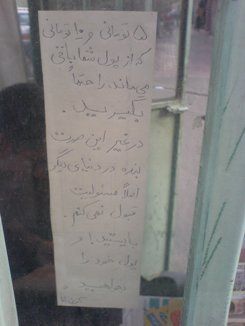 ۵ تومانی و ۱۰ تومانی
که از پول شما باقی
می‌ماند را حتماً
بگیرید.
در غیر این صورت
بنده در دنیای دیگر
اصلاً مسئولیت
قبول نمی‌کنم.
بایستید و
پول خود را
بخواهید.